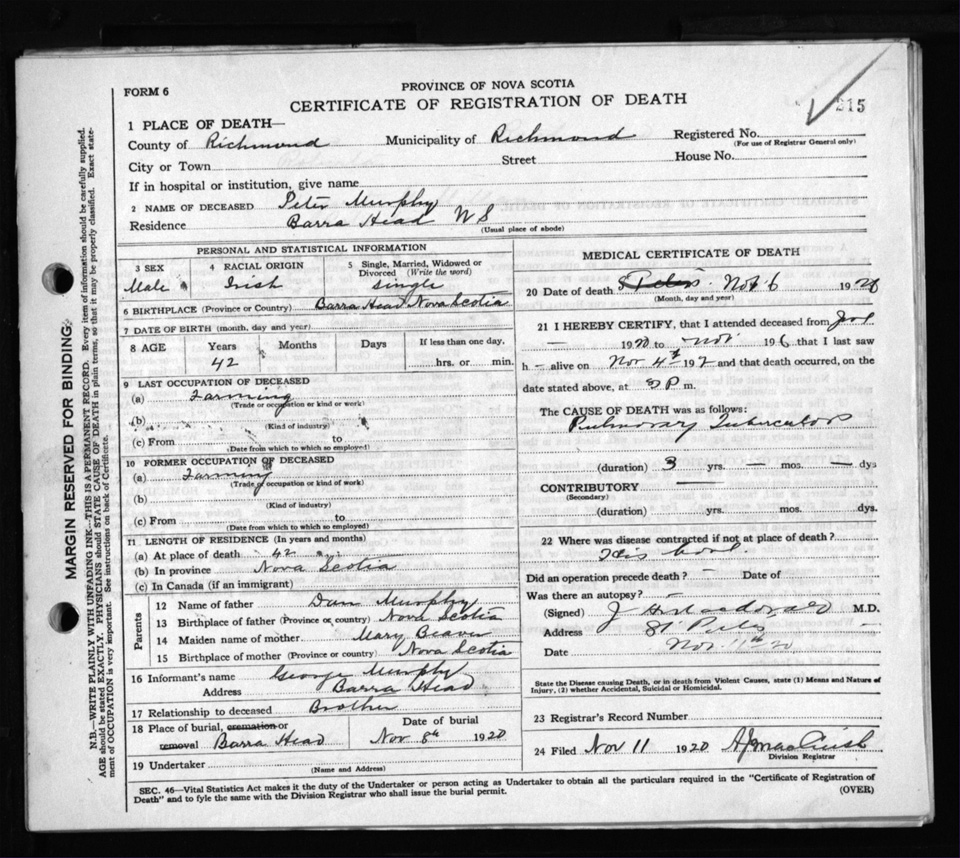 PROVINCE OF NOVA SCOTIA
FORM 6
CERTIFICATE OF REGISTRATION OF DEATH
215
1 PLACE OF DEATH—
County of Richmond Municipality of Richmond Registered No.
(For use of Registrar General only)
City or Town Street House No.
If in hospital or institution, give name
2 NAME OF DECEASED Peter Murphy
Residence Barra Head N S
(Usual place of abode)
PERSONAL AND STATISTICAL INFORMATION
3 SEX 4 RACIAL ORIGIN 5 Single, Married, Widowed or Divorced (Write the word)
Male Irish Single
6 BIRTHPLACE (Province or Country) Barra Head Nova Scotia
7 DATE OF BIRTH (month, day and year)
8 AGE Years Months Days If less than one day,
42 hrs. or min.
9 LAST OCCUPATION OF DECEASED
(a) Farming
(Trade or occupation or kind of work)
(b)
(Kind of industry)
(c) From to
(Date from which to which so employed)
10 FORMER OCCUPATION OF DECEASED
(a) Farming
(Trade or occupation or kind of work)
(b)
(Kind of industry)
(c) From to
(Date from which to which so employed)
11 LENGTH OF RESIDENCE (In years and months)
(a) At place of death 42
(b) In province Nova Scotia
(c) In Canada (if an immigrant)
Parents
12 Name of father Dan Murphy
13 Birthplace of father (Province or country) Nova Scotia
14 Maiden name of mother Mary Beaver
15 Birthplace of mother (Province or country) Nova Scotia
16 Informant's name George Murphy
Address Barra Head
17 Relationship to deceased Brother
18 Place of burial, cremation or removal Barra Head
Date of burial
Nov 8th 1920
19 Undertaker
(Name and Address)
MEDICAL CERTIFICATE OF DEATH
20 Date of death Nov 6 1920
(Month, day and year)
21 I HEREBY CERTIFY, that I attended deceased from
— 1920 to Nov 6 that I last saw
h — alive on Nov 4th 192 and that death occurred, on the
date stated above, at P m.
The CAUSE OF DEATH was as follows:
Pulmonary Tuberculosis
(duration) 3 yrs. — mos. — dys
CONTRIBUTORY —
(Secondary)
(duration) yrs. mos. dys.
22 Where was disease contracted if not at place of death?
Did an operation precede death? — Date of
Was there an autopsy? —
(Signed) J H Macdonald M.D.
Address St Peters
Date Nov. 11th 20
State the Disease causing Death, or in death from Violent Causes, state (1) Means and Nature of
Injury, (2) whether Accidental, Suicidal or Homicidal.
23 Registrar's Record Number
24 Filed Nov 11 1920
Division Registrar
SEC. 46—Vital Statistics Act makes it the duty of the Undertaker or person acting as Undertaker to obtain all the particulars required in the "Certificate of Registration of
Death" and to fyle the same with the Division Registrar who shall issue the burial permit. (OVER)
MARGIN RESERVED FOR BINDING.
N.B.—WRITE PLAINLY WITH UNFADING INK—THIS IS A PERMANENT RECORD. Every item of information should be carefully supplied.
AGE should be stated EXACTLY. PHYSICIANS should STATE CAUSE OF DEATH in plain terms, so that it may be properly classified. Exact state-
ment of OCCUPATION is very important. See instructions on back of Certificate.